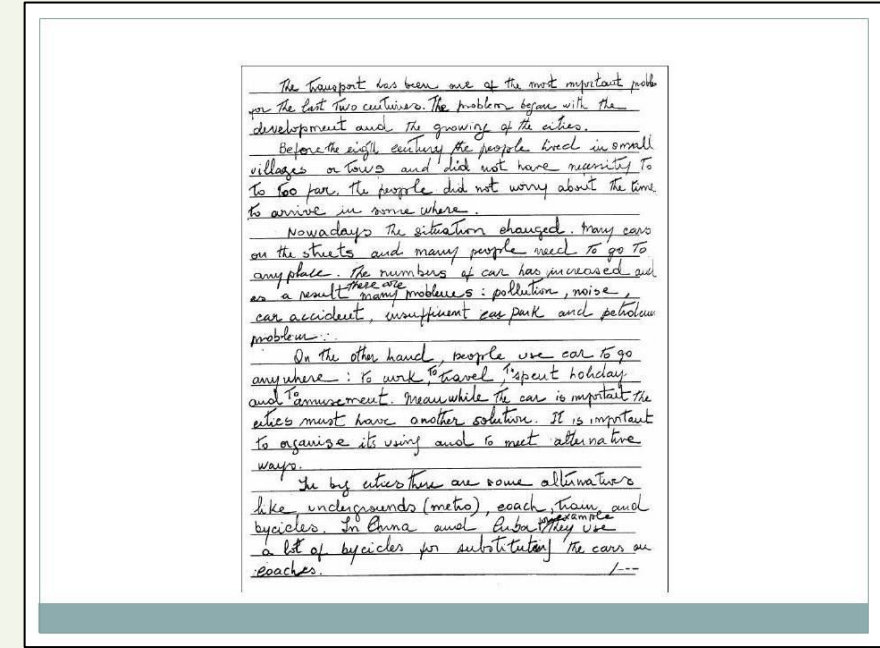 The transport has been one of the most important probl
for the last two centuries. The problem began with the
development and the growing of the cities.
Before the eigth century the people lived in small
villages or tows and did not have necessity to
to too far. the people did not worry about the time
to arrive in some where.
Nowadays the situation changed. many cars
on the streets and many people need to go to
any place. The numbers of car has increased and
as a result there are many problems : pollution, noise,
car accident, insufficient car park and
problem
On the other hand, people use car to go
anywhere : to work, to travel, to spent holiday
and to amusement. Meanwhile the car is important the
cities must have another solution. It is important
to organise its using and to meet alternative
ways.
In big cities there are some alternatives
like undergrounds (metro), coach, train and
bycicles. In China and Cuba for example they use
a lot of bycicles for substituting the cars or
coaches. /---